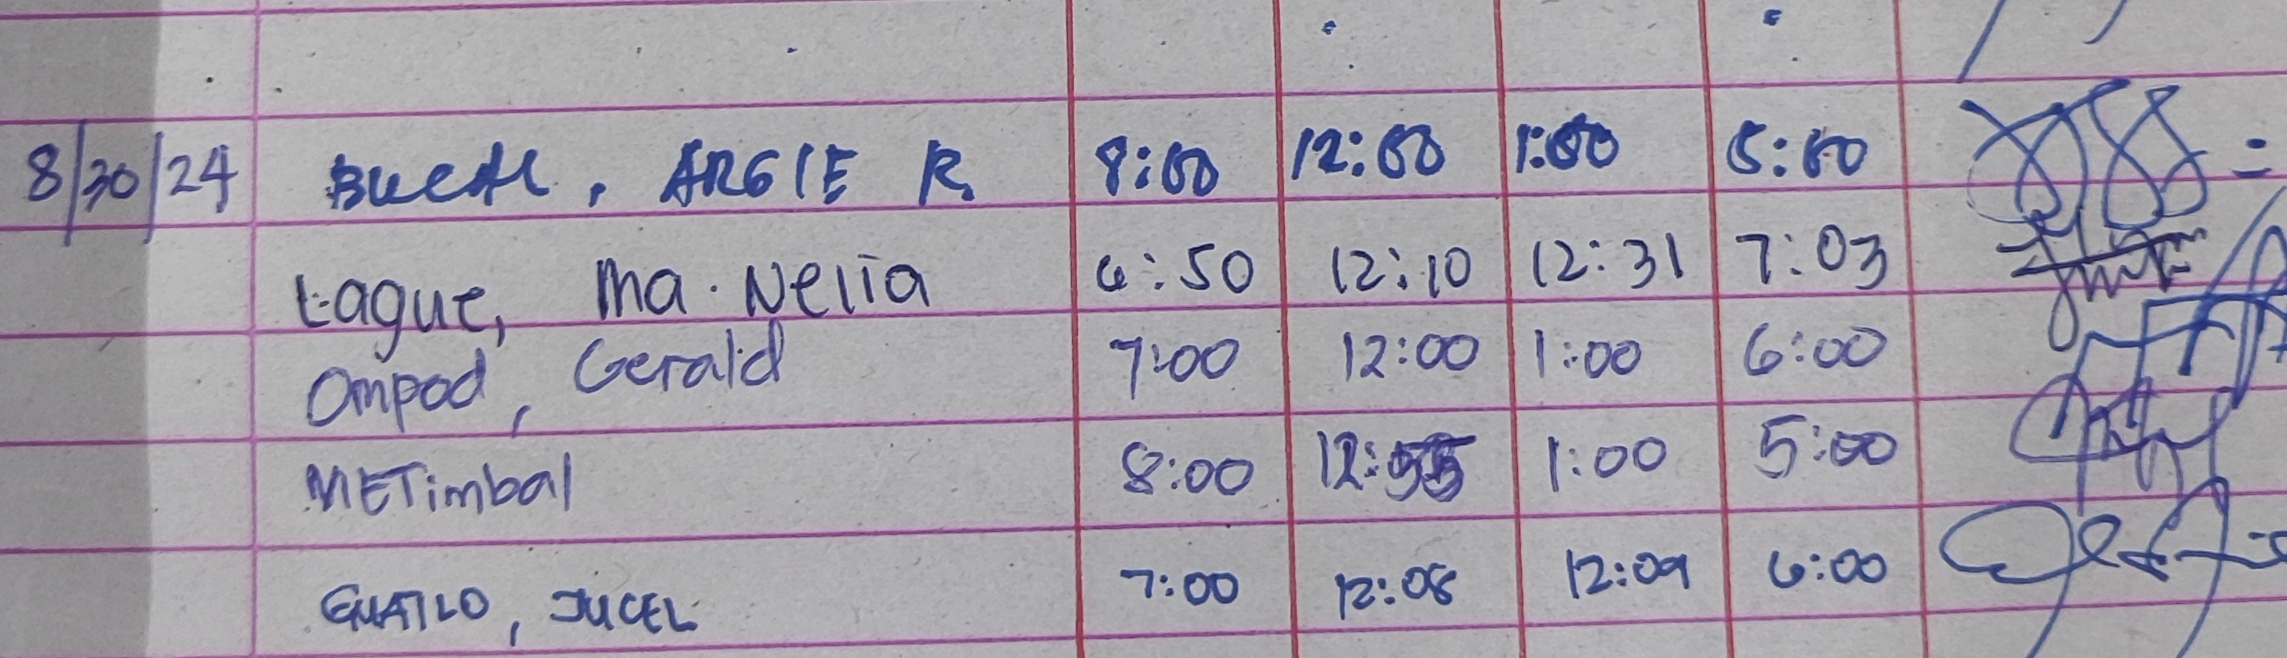 8/30/24 BUCAL, ARGIE R. 8:00 12:00 1:00 5:00
Lague, Ma. Nelia 6:50 12:10 12:31 7:03
Ompod, Gerald 7:00 12:00 1:00 6:00
METimbal 8:00 12:55 1:00 5:00
GUATLO, JUCEL 7:00 12:08 12:09 6:00